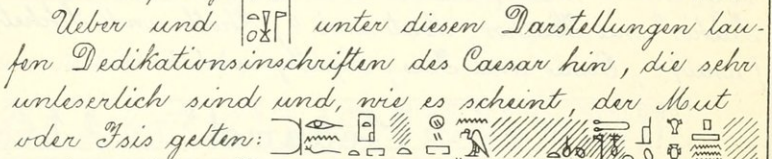 Ueber und unter diesen Darstellungen lau-
fen Dedikationsinschriften des Caesar hin, die sehr
unleserlich sind und, wie es scheint, der Mut
oder Isis gelten: